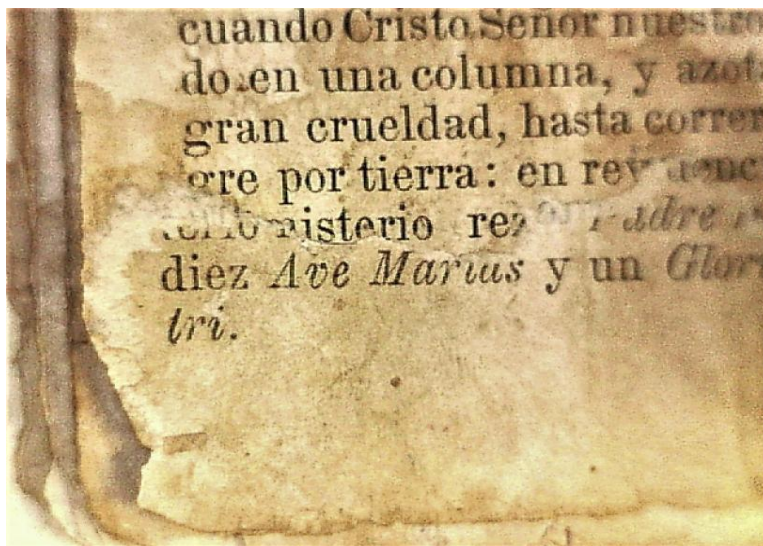 cuando Cristo Señor nuestro
do en una columna, y
gran crueldad, hasta correr
gre por tierra: en
misterio
diez Ave Marias y un
tri.